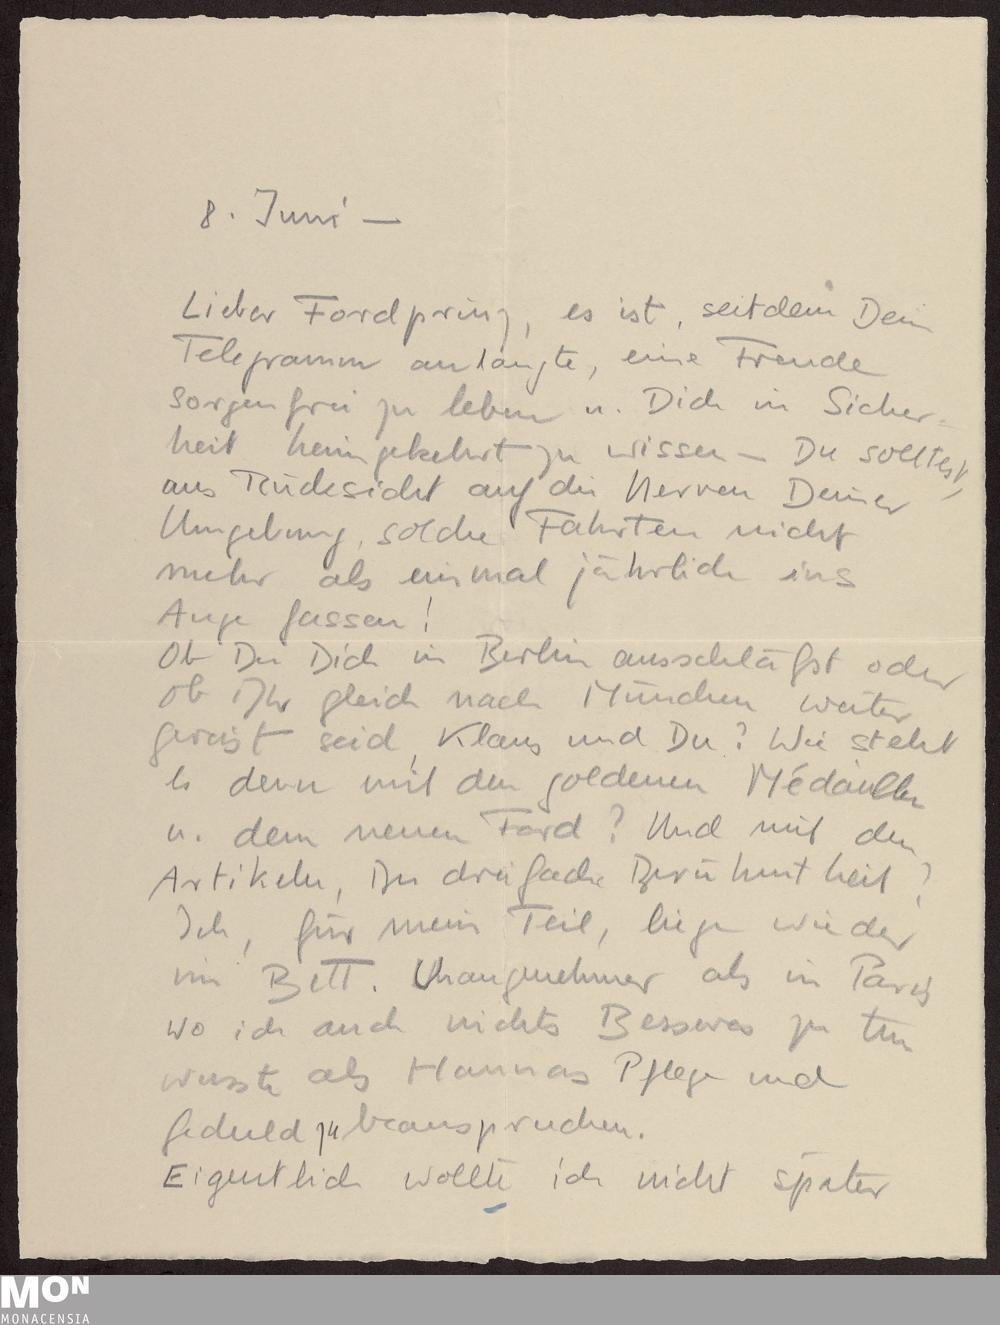 8. Juni —
Lieber Fordprinz, es ist, seitdem Dein
Telegramm anlangte, eine Freude
sorgenfrei zu leben u. Dich in Sicher-
heit heimgekehrt zu wissen — Du solltest,
aus Rücksicht auf die Nerven Deiner
Umgebung, solche Fahrten nicht
mehr als einmal jährlich ins
Auge fassen!
Ob Du Dich in Berlin ausschläfst oder
ob Ihr gleich nach München weiter
gereist seid, Klaus und Du? Wie steht
es denn mit den goldenen Médaillen
u. dem neuen Ford? Und mit den
Artikeln, Du dreifache Berühmtheit?
Ich, für mein Teil, liege wieder
im Bett. Unangenehmer als in Paris
wo ich auch nichts Besseres zu tun
wusste als Hannas Pflege und
Geduld zu beanspruchen.
Eigentlich wollte ich nicht später
MON
MONACENSIA